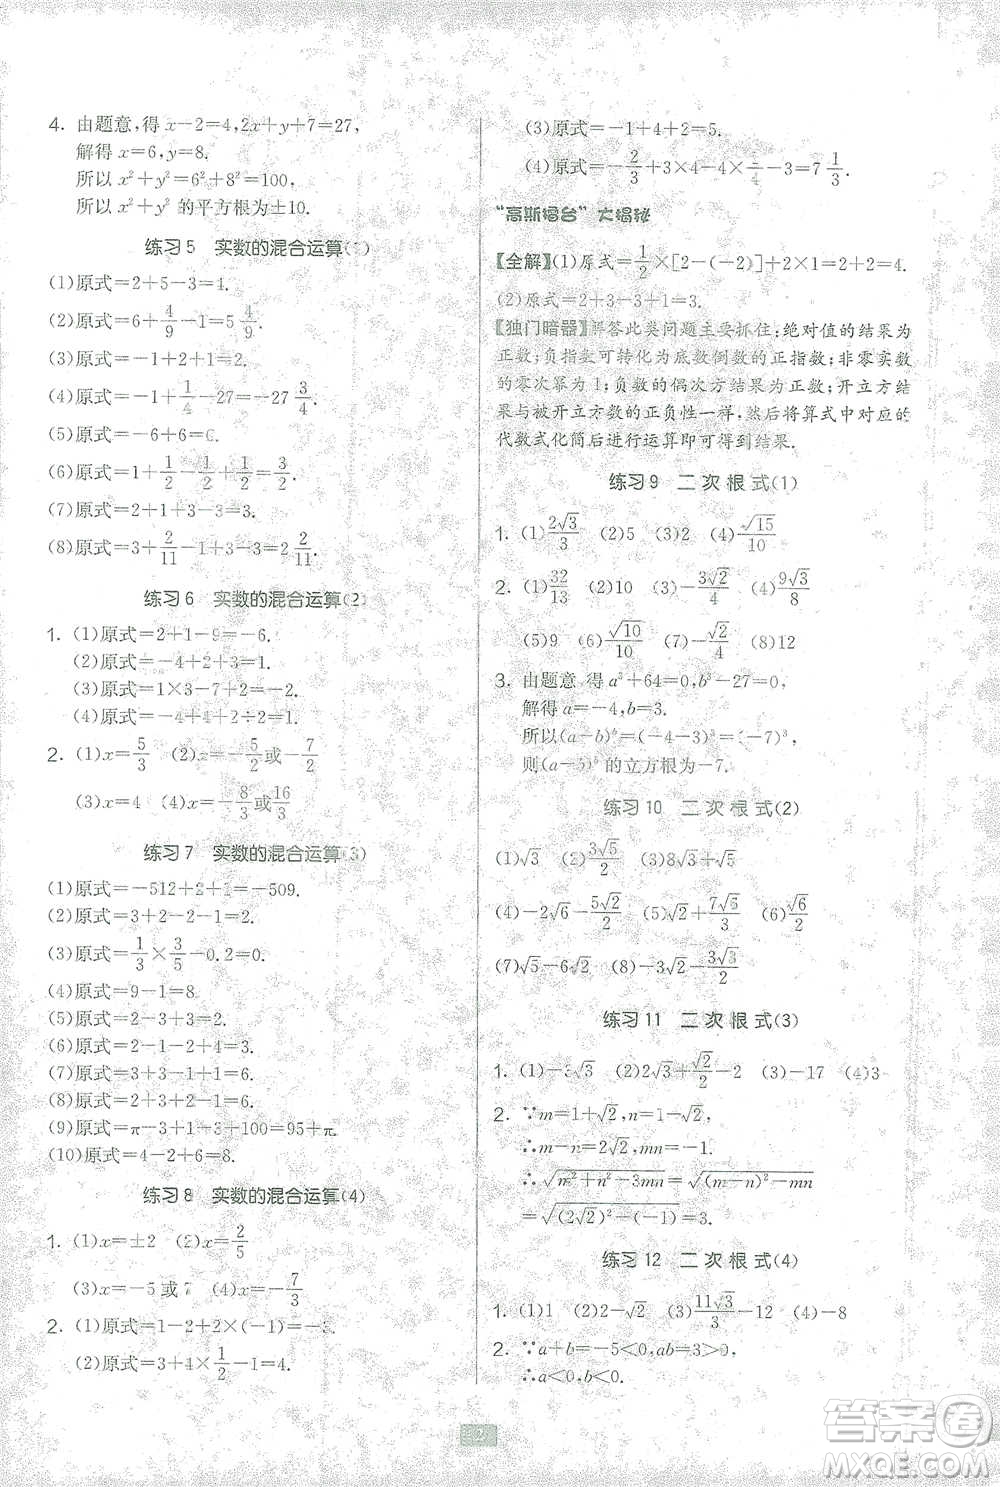 4. 由题意,得 x-2=4,2x+y+7=27,
解得 x=6,y=8.
所以 x²+y²=6²+8²=100,
所以 x²+y² 的平方根为±10.
练习5 实数的混合运算(1)
(1)原式=2+5-3=4.
(2)原式=6+4/9-1=5 4/9.
(3)原式=2-2+1=1.
(4)原式=-1+1/4-27=-27 3/4.
(5)原式=-6+6=0.
(6)原式=1+1/2-1/2+1/2=1 1/2.
(7)原式=2+1+3-3=3.
(8)原式=3+2/11-1+3-3=2 2/11.
练习6 实数的混合运算(2)
1. (1)原式=2+1-9=-6.
(2)原式=-4+2+3=1.
(3)原式=1×3-7+2=-2.
(4)原式=-4+4+2÷2=1.
2. (1)x=5/3 (2)x=-5/2或-7/2
(3)x=4 (4)x=-8/3或16/3
练习7 实数的混合运算(3)
(1)原式=-512+2+1=-509.
(2)原式=3+2-2-1=2.
(3)原式=1/3×3/5-0.2=0.
(4)原式=9-1=8.
(5)原式=2-3+3=2.
(6)原式=2+3-2=3.
(7)原式=3+1-3+2=3.
(8)原式=2+1+1+2=6.
(9)原式=π-3+1-3+100=95+π.
(10)原式=4-2+6=8.
练习8 实数的混合运算(4)
1. (1)x=±2 (2)x=2/5
(3)x=-5或7 (4)x=-7/3
2. (1)原式=-1+2×(-1)=-3.
(2)原式=3+4×1/2-1=4.
(3)原式=-1+4+2=5.
(4)原式=-2/3+3×4-4×1/4-3=7 1/3.
“高斯擂台”大揭秘
【全解】(1)原式=1/2×[2-(-2)]+2×1=2+2=4.
(2)原式=2+3-3+1=3.
【独门暗器】解答此类问题主要抓住:绝对值的结果为
正数;负指数可转化为底数倒数的正指数;非零实数
的零次幂为1;负数的偶次方结果为正数;开立方结
果与被开立方数的正负性一样,然后将算式中对应的
代数式化简后进行运算即可得到结果.
练习9 二次根式(1)
1. (1)2√3/3 (2)5 (3)2 (4)-√15/10
2. (1)32/13 (2)10 (3)-3√2/4 (4)9√3/8
(5)9 (6)√10/10 (7)-√2/4 (8)12
3. 由题意,得 a³+64=0,b³-27=0,
解得 a=-4,b=3.
所以(a-b)³=(-4-3)³=(-7)³,
则(a-b)³的立方根为-7.
练习10 二次根式(2)
(1)√3 (2)3√5/2 (3)8√3+√5
(4)-2√6-5√2/2 (5)2+7√5/3 (6)√6/2
(7)√5-√2 (8)-3√2-3√3/2
练习11 二次根式(3)
1. (1)-3√3 (2)2√3+√2/2-2 (3)-17 (4)3
2. ∵m=1+√2,n=1-√2,
∴m-n=2√2,mn=-1.
∴√(m²+n²-3mn)=√((m-n)²-mn)
=√((2√2)²-(-1))=3.
练习12 二次根式(4)
1. (1)1 (2)2-√2 (3)11√3/3-12 (4)-8
2. ∵a+b=-5<0,ab=3>0,
∴a<0,b<0.
2
答案卷
MXQE.COM